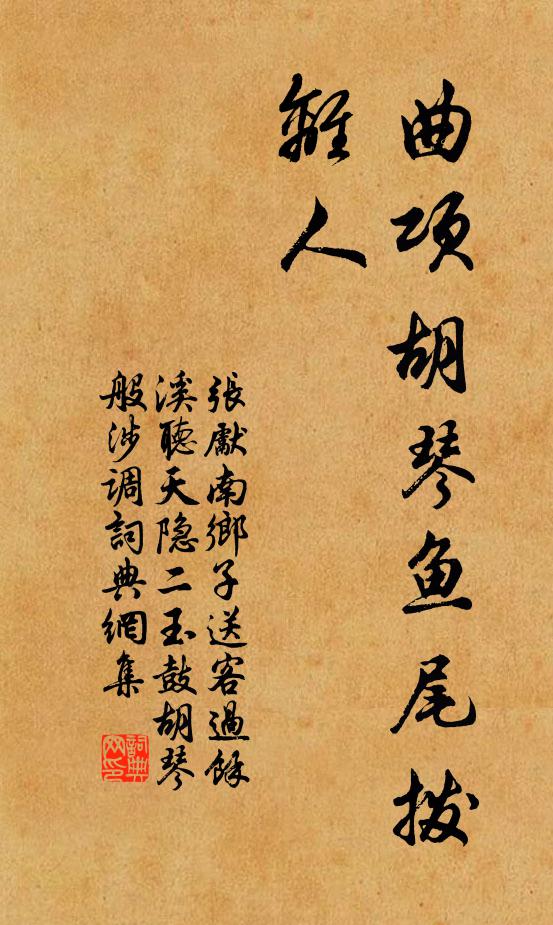 曲项胡琴鱼尾拨
離人
張獻南鄉子送客過餘
溪聽天隐二玉鼓胡琴
般涉调詞典網集
詞典
网印